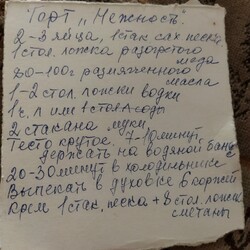 Торт "Нежность".
2-3 яйца, 1 стак сах песка
1 стол. ложка разогретого
меда
80-100г размягченного
масла
1-2 стол. ложки водки
1 ч. л или 1 стол л соды
2 стакана муки
Тесто крутое, 7-10 минут
держать на водяной бане
20-30 минут в холодильнике
Выпекать в духовке 6 коржей
крем 1 стак. песка + 8 стол. ложек
сметаны